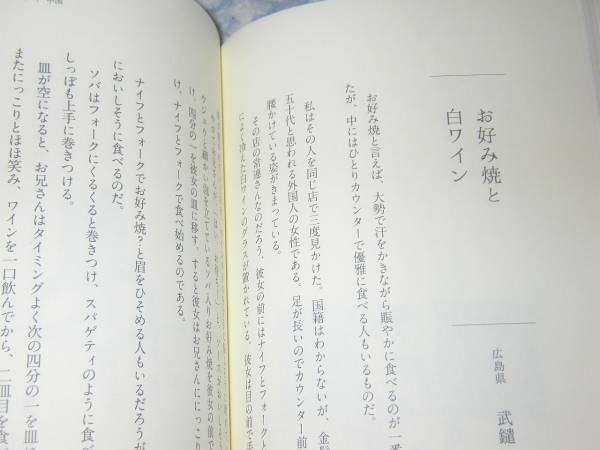 お好み焼と
白ワイン
広島県　武鑓
お好み焼と言えば、大勢で汗をかきながら賑やかに食べるのが一番
だが、中にはひとりカウンターで優雅に食べる人もいるものだ。
私はその人を同じ店で三度見かけた。国籍はわからないが、金髪
五十代と思われる外国人の女性である。足が長いのでカウンター前
腰かけている姿がきまっている。
その店の常連さんなのだろう、彼女の前にはナイフとフォークと
によく冷えた白ワインのグラスが置かれている。彼女は目の前で手
ウジュウと細かい泡を立てているソバ入りお好み焼を彼女の前で
け、四分の一を彼女の皿に移す。すると彼女はお兄さんににっこり
け、ナイフとフォークで食べ始めるのである。
ナイフとフォークでお好み焼？と眉をひそめる人もいるだろうが
においしそうに食べるのだ。
ソバはフォークにくるくると巻きつけ、スパゲティのように食べ
しっぽも上手に巻きつける。
皿が空になると、お兄さんはタイミングよく次の四分の一を皿に
またにっこりとほほ笑み、ワインを一口飲んでから、二皿目を食べ